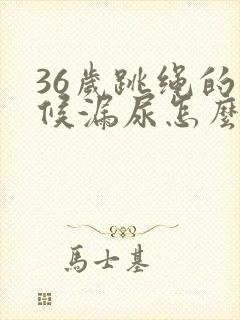 36歲跳绳的
候漏尿怎麼
馬士基